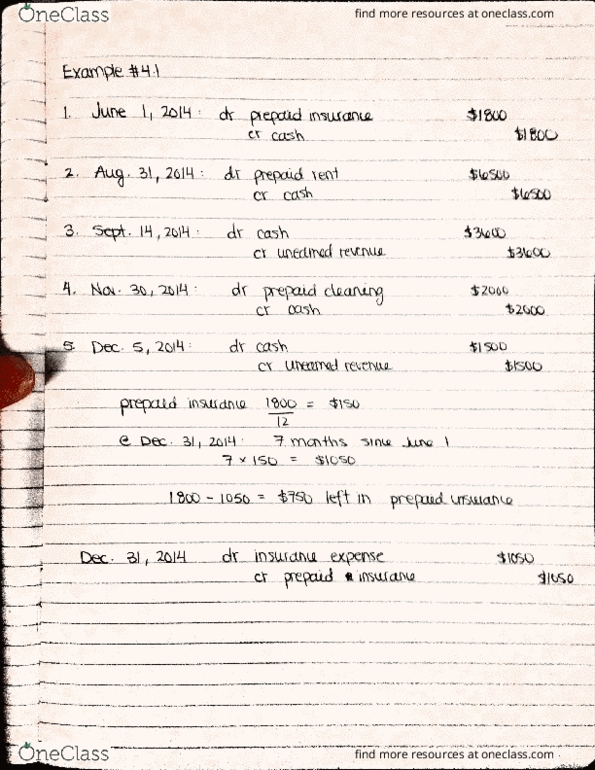 OneClass find more resources at oneclass.com
Example #4.1
1. June 1, 2014: dr prepaid insurance $1800
cr cash $1800
2. Aug. 31, 2014: dr prepaid rent $6500
cr cash $6500
3. Sept. 14, 2014: dr cash $3600
cr unearned revenue $3600
4. Nov. 30, 2014: dr prepaid cleaning $2000
cr cash $2000
5. Dec. 5, 2014: dr cash $1500
cr unearned revenue $1500
prepaid insurance 1800 = $150
12
@ Dec. 31, 2014: 7 months since June 1
7 × 150 = $1050
1800 - 1050 = $750 left in prepaid insurance
Dec. 31, 2014 dr insurance expense $1050
cr prepaid insurance $1050
OneClass find more resources at oneclass.com